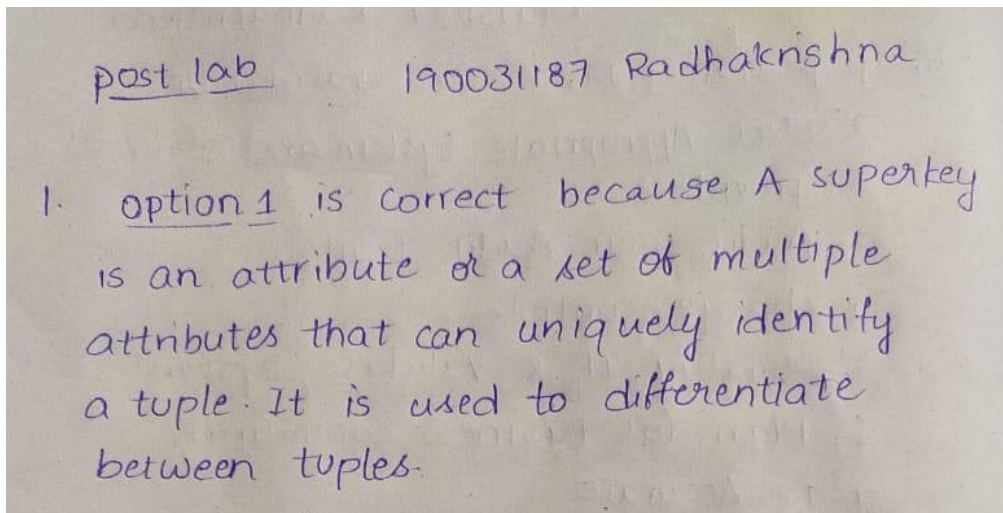 post lab 190031187 Radhakrishna
1. option 1 is correct because A superkey
is an attribute or a set of multiple
attributes that can uniquely identify
a tuple. It is used to differentiate
between tuples.